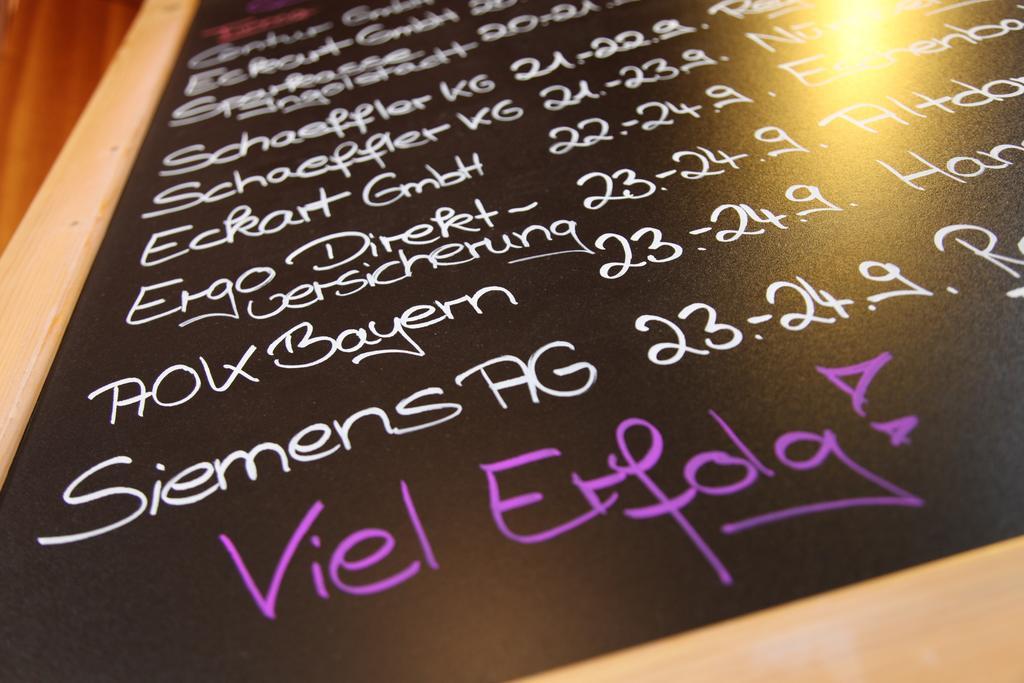 Eckart GmbH
Sparkasse
Ingolstadt 20.-21.9.
Schaeffler KG 21.-22.9.
Schaeffler KG 21.-23.9.
Eckart GmbH 22.-24.9.
Ergo Direkt-
versicherung 23.-24.9.
AOK Bayern 23.-24.9.
Siemens AG 23.-24.9.
Viel Erfolg!